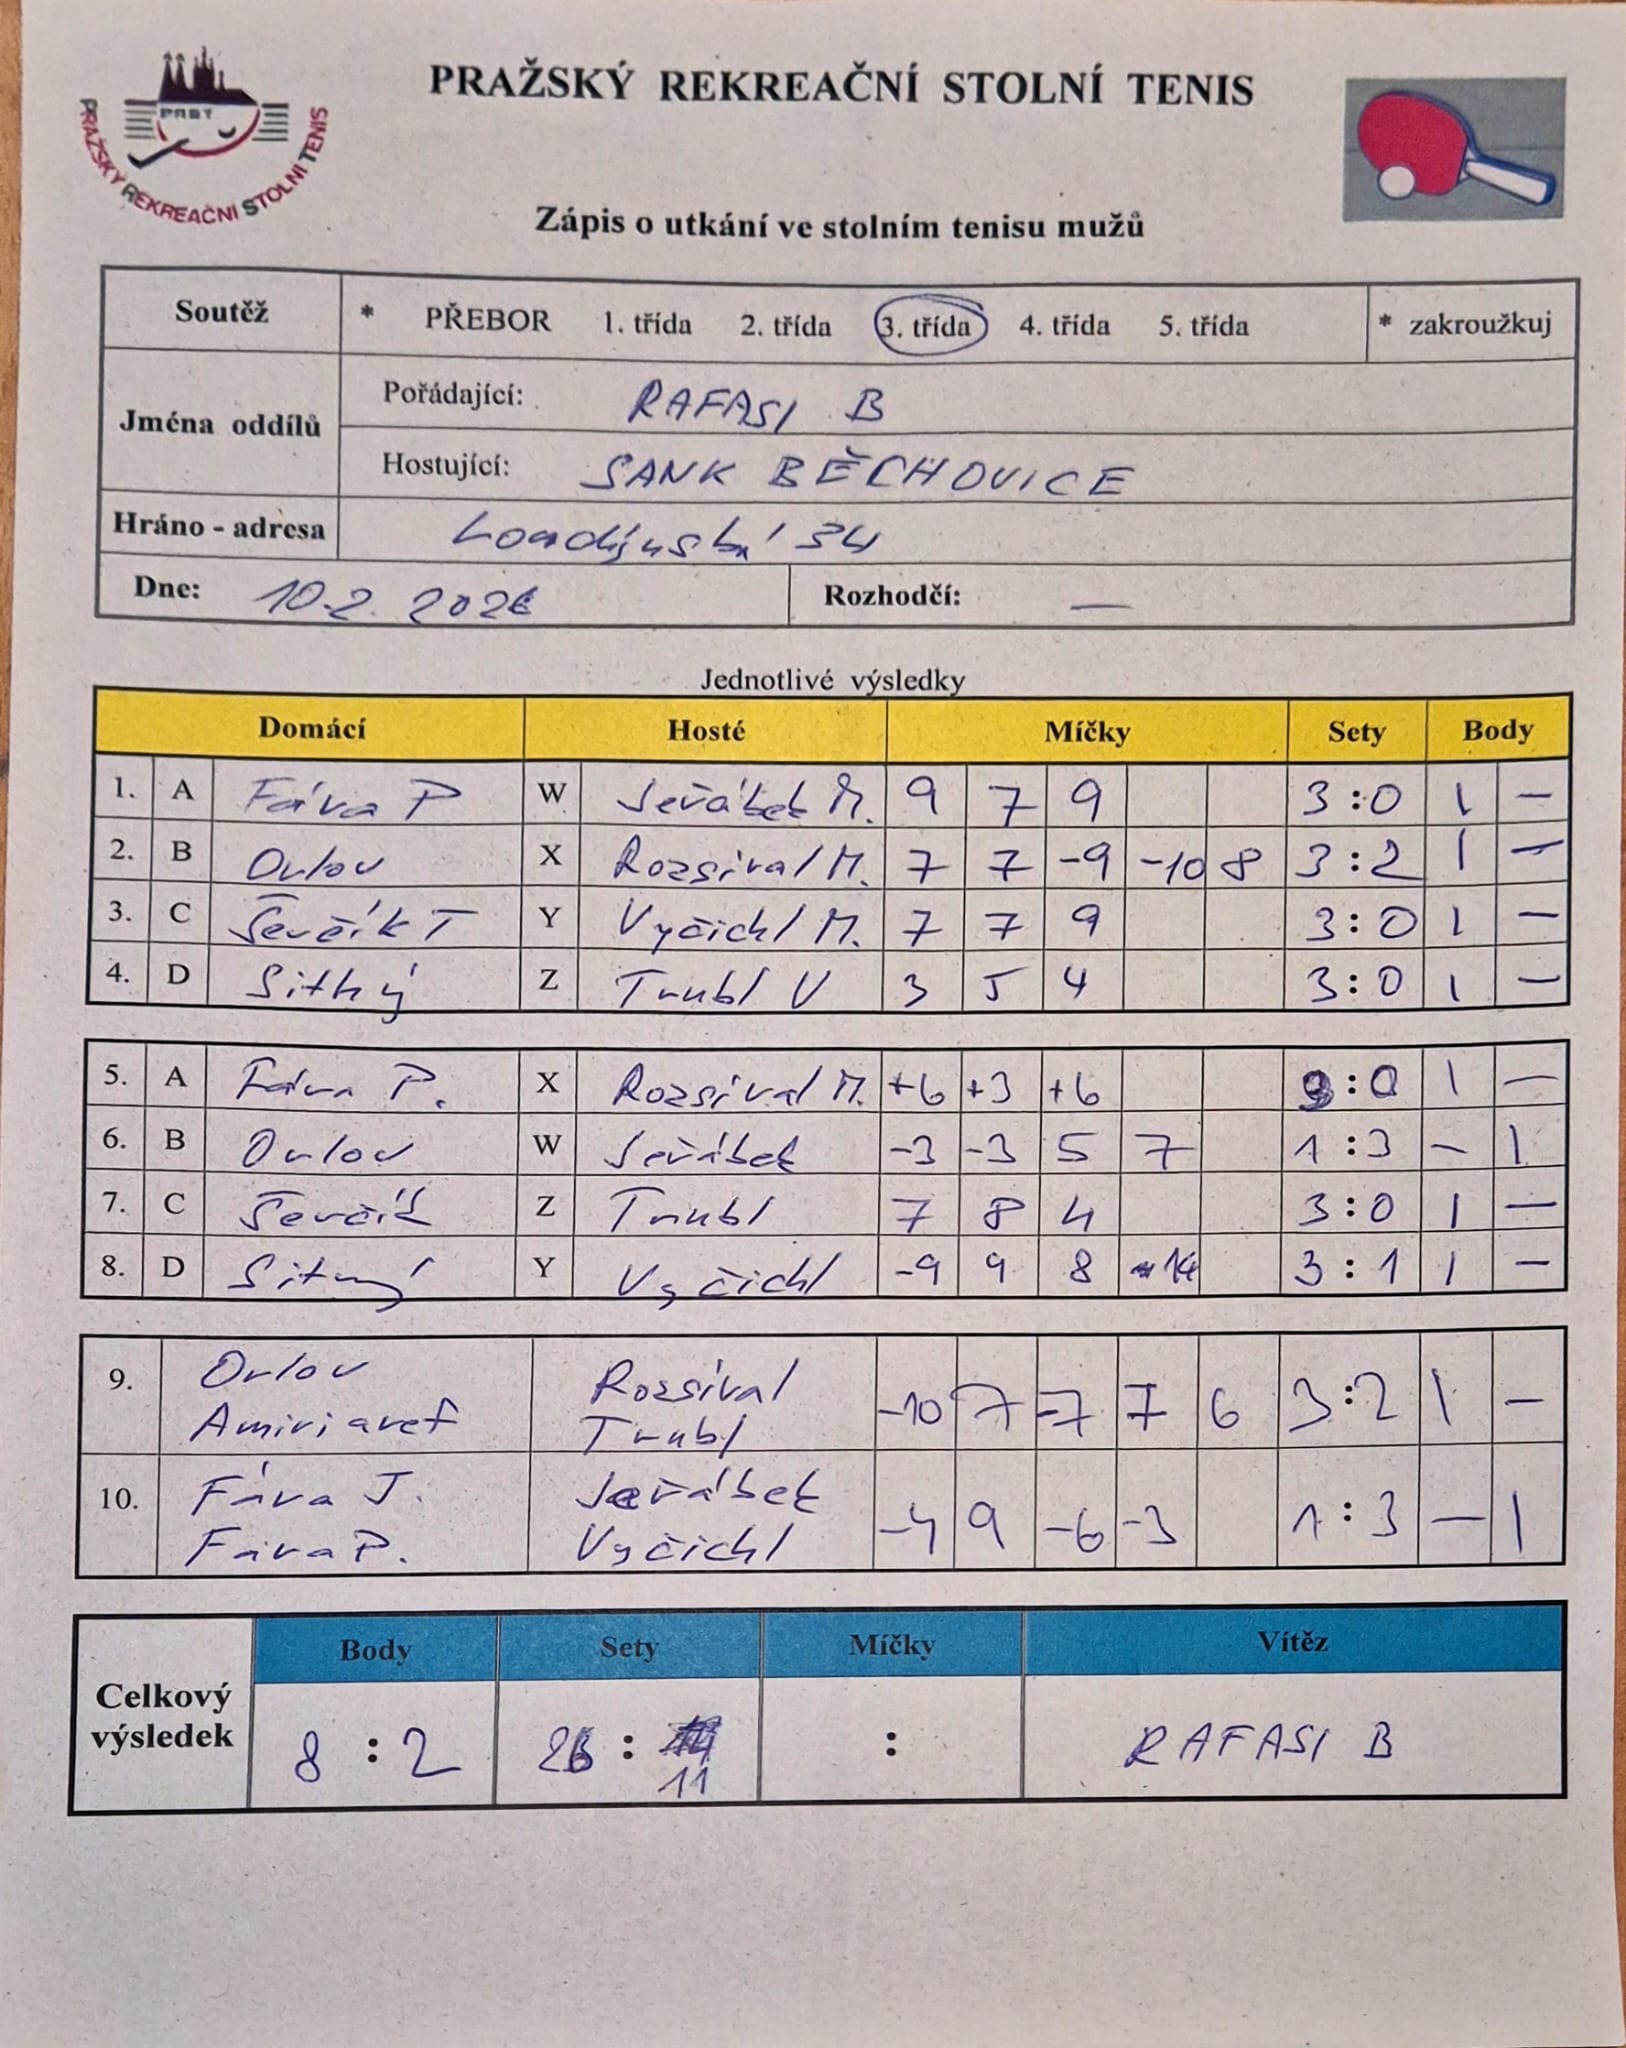 PRAŽSKÝ REKREAČNÍ STOLNÍ TENIS
PRST
PRAŽSKÝ REKREAČNÍ STOLNÍ TENIS
Zápis o utkání ve stolním tenisu mužů
Soutěž * PŘEBOR 1. třída 2. třída 3. třída 4. třída 5. třída * zakroužkuj
Jména oddílů
Pořádající: RAFASI B
Hostující: SANK BĚCHOVICE
Hráno - adresa 34
Dne: 10.2. 2026 Rozhodčí: —
Jednotlivé výsledky
Domácí Hosté Míčky Sety Body
1. A Fáva P W Jeřábek M. 9 7 9 3:0 1 —
2. B Orlov X Rozsíval M. 7 7 -9 -10 8 3:2 1 —
3. C Ševčík T Y Vyčichl M. 7 7 9 3:0 1 —
4. D Sitný Z Trubl V 3 5 4 3:0 1 —
5. A Fáva P. X Rozsíval M. +6 +3 +6 3:0 1 —
6. B Orlov W Jeřábek -3 -3 5 7 1:3 — 1
7. C Ševčík Z Trubl 7 8 4 3:0 1 —
8. D Sitný Y Vyčichl -9 9 8 14 3:1 1 —
9. Orlov Rozsíval -10 7 -7 7 6 3:2 1 —
Amiriaref Trubl
10. Fáva J. Jeřábek -4 9 -6 -3 1:3 — 1
Fáva P. Vyčichl
Celkový výsledek
Body Sety Míčky Vítěz
8 : 2 26 : 11 : RAFASI B